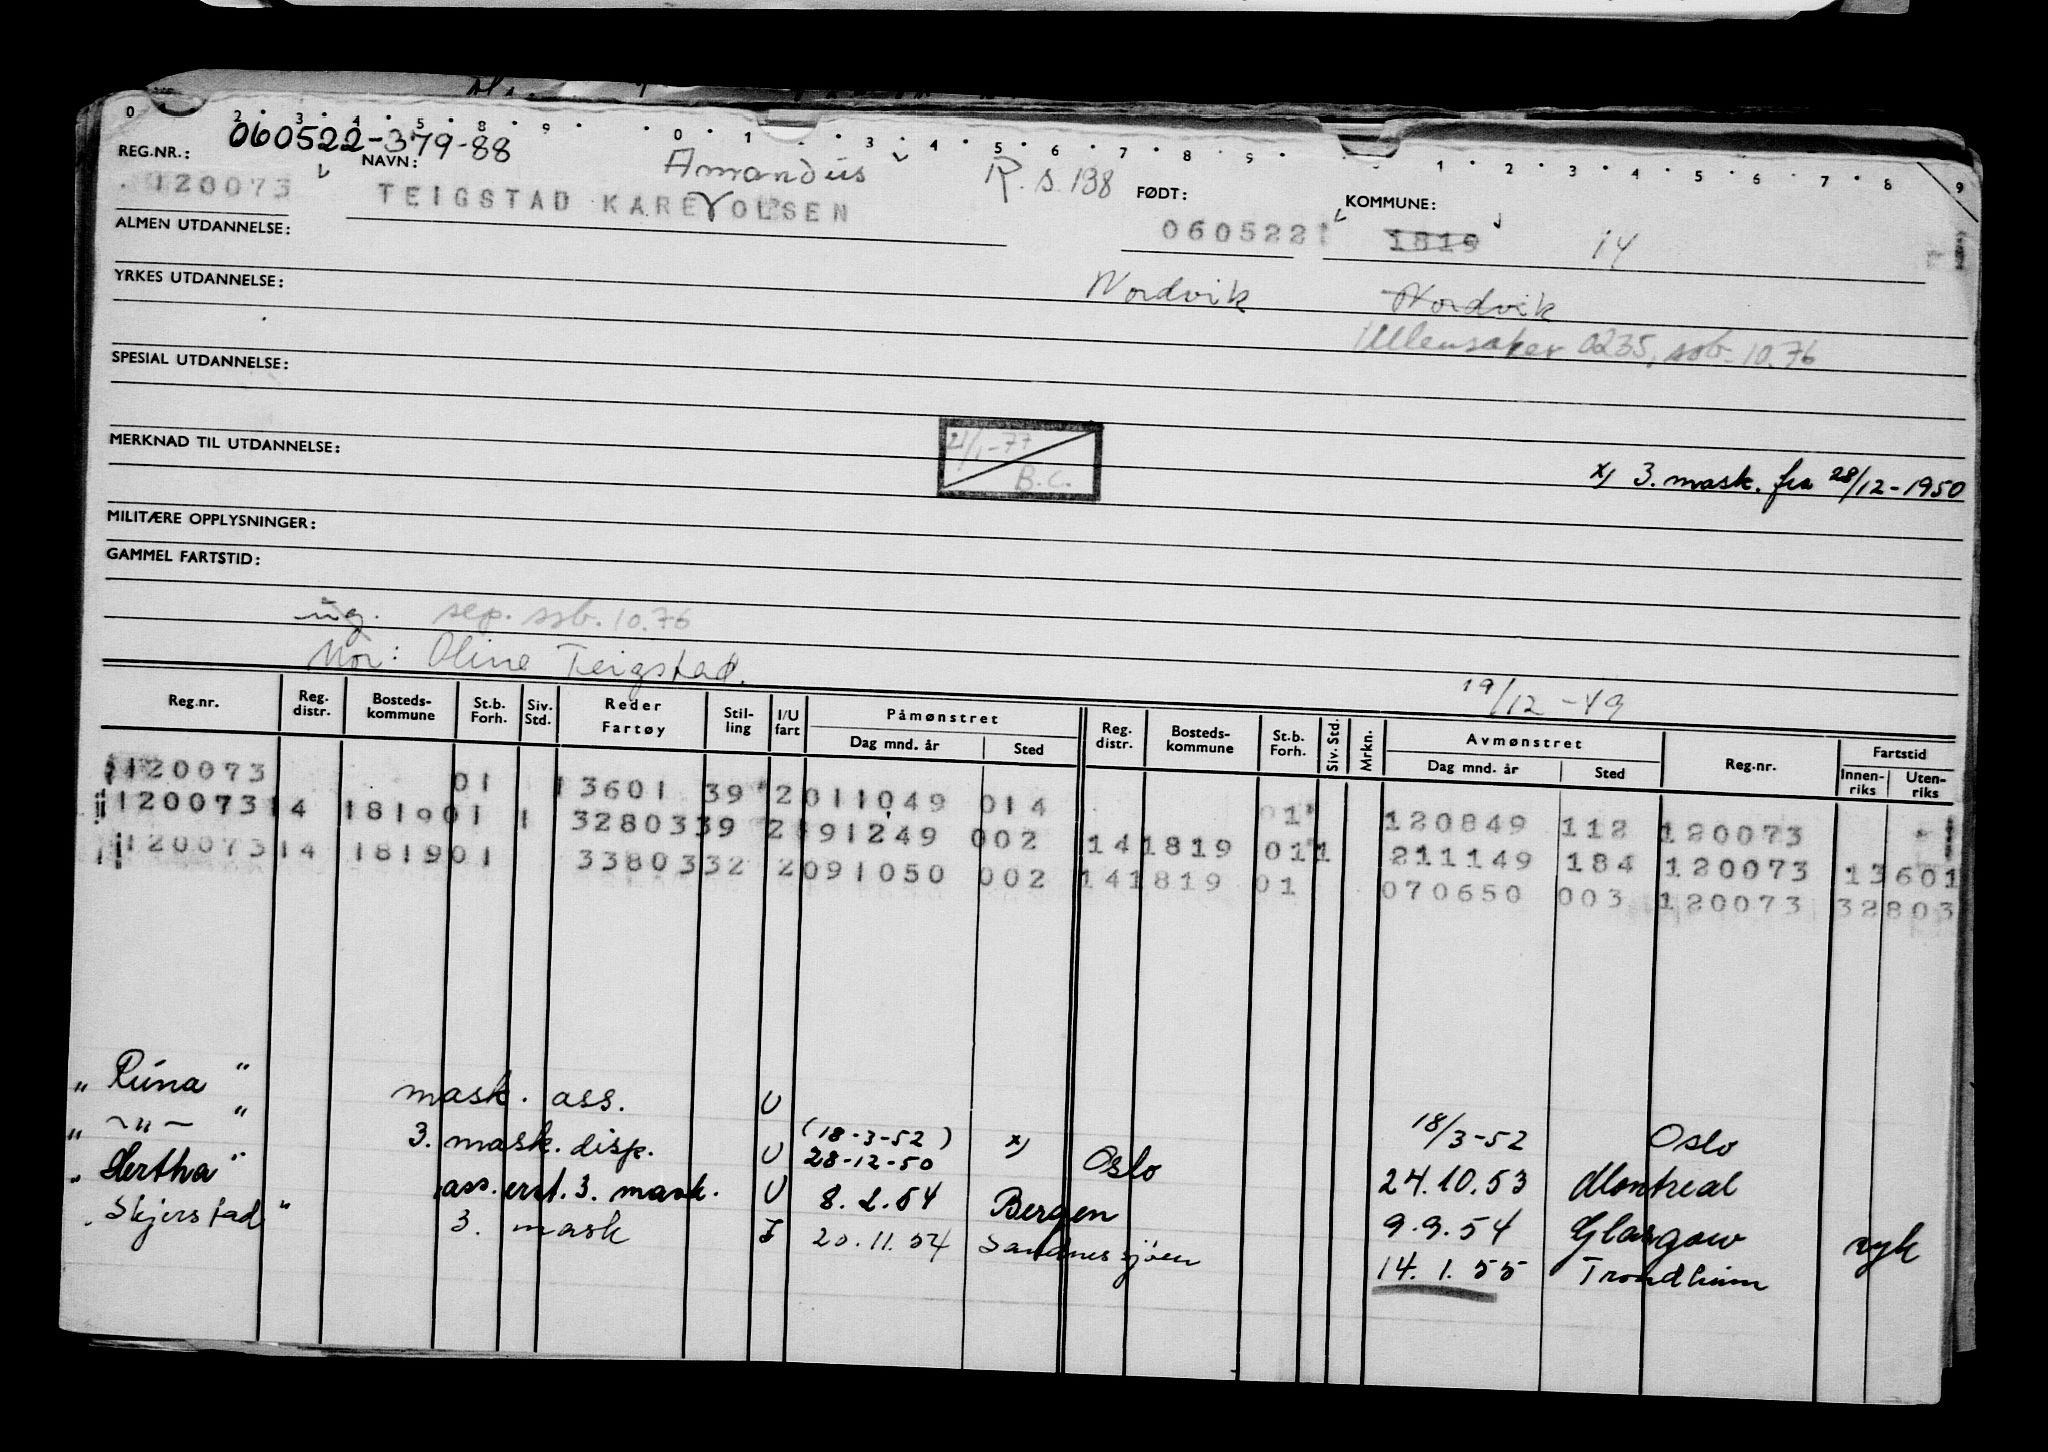 0 2 · 3 · 4 · 5 · 8 · 9 · · 0 · 1 · · 3 · 4 · 5 · 6 · 7 · 8 · 9 · · 1 · 2 · 3 · 4 · 5 · 6 · 7 · 8 · 9
REG.NR.: 060522-379-88
NAVN: Amandus R.S.138
120073 TEIGSTAD KARE OLSEN
FØDT: 060522
KOMMUNE: 1819 14
ALMEN UTDANNELSE:
YRKES UTDANNELSE: Nordvik Nordvik
Ullensaker 0235, ssb. 10.76
SPESIAL UTDANNELSE:
21/1-77 B.C.
MERKNAD TIL UTDANNELSE: x) 3. mask. fra 28/12-1950
MILITÆRE OPPLYSNINGER:
GAMMEL FARTSTID:
ug. sep. ssb. 10.76
Mor: Oline Teigstad.
19/12-49
Reg.nr. Reg. distr. Bosteds-kommune St.b. Forh. Siv. Std. Reder Fartøy Stil-ling I/U fart Påmønstret Dag mnd. år Sted Reg. distr. Bosteds-kommune St.b. Forh. Siv. Std. Mrkn. Avmønstret Dag mnd. år Sted Reg.nr. Fartstid Innen-riks Uten-riks
120073 01 13601 39 2 011049 014 01 120849 112 120073
120073 14 1819 01 1 32803 39 2 191249 002 14 1819 01 1 211149 184 120073 13601
120073 14 1819 01 33803 32 2 091050 002 14 1819 01 070650 003 120073 32803
" Runa " mask. ass. U 18/3-52 Oslo
" -"- " 3. mask. disp. U (18-3-52) 28-12-50 x) Oslo 24.10.53 Montreal
" Hertha " ass. erst. 3. mask. U 8.2.54 Bergen 9.9.54 Glasgow syk
" Skjerstad " 3. mask I 20.11.54 Sandnessjøen 14.1.55 Trondheim